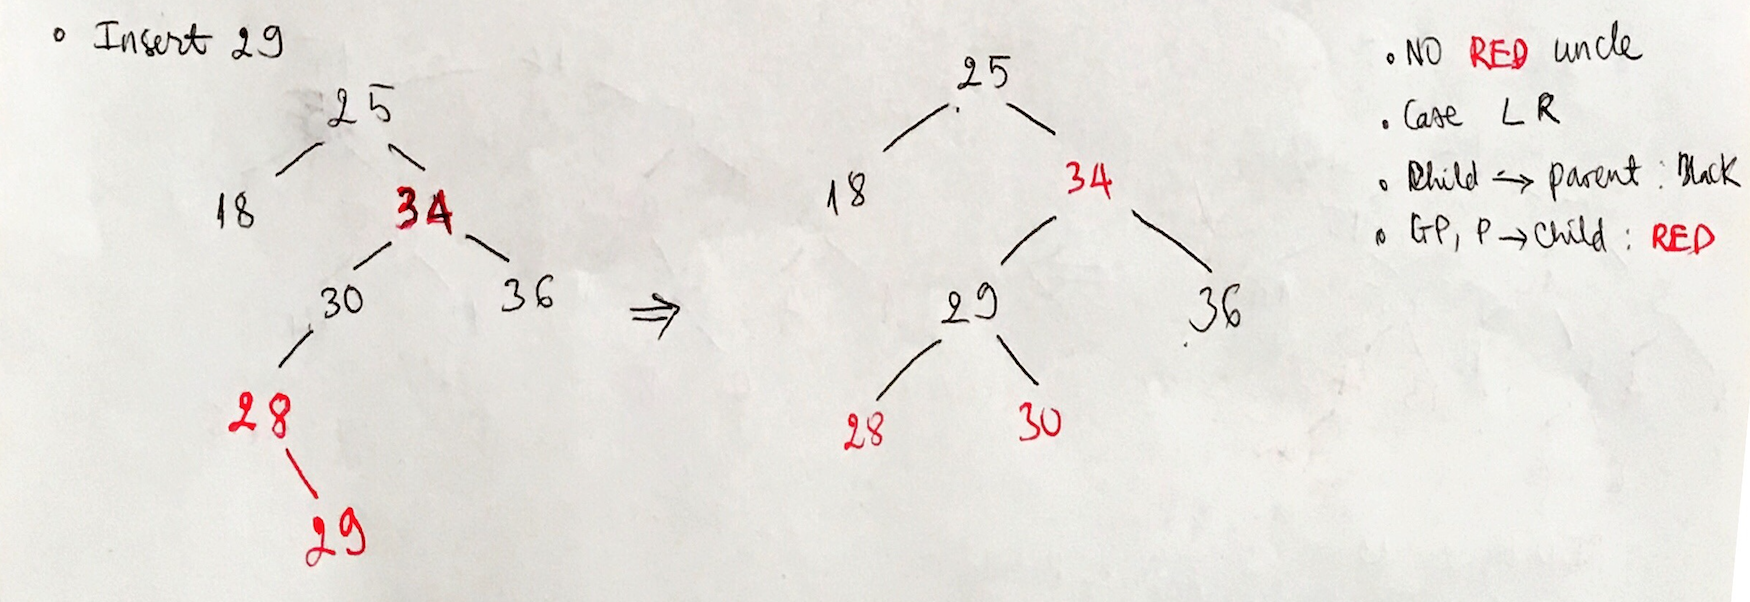 • Insert 29
25
18 34
30 36
28
29
⇒
25
18 34
29 36
28 30
• NO RED uncle
• Case LR
• Child → parent : Black
• GP, P → child : RED